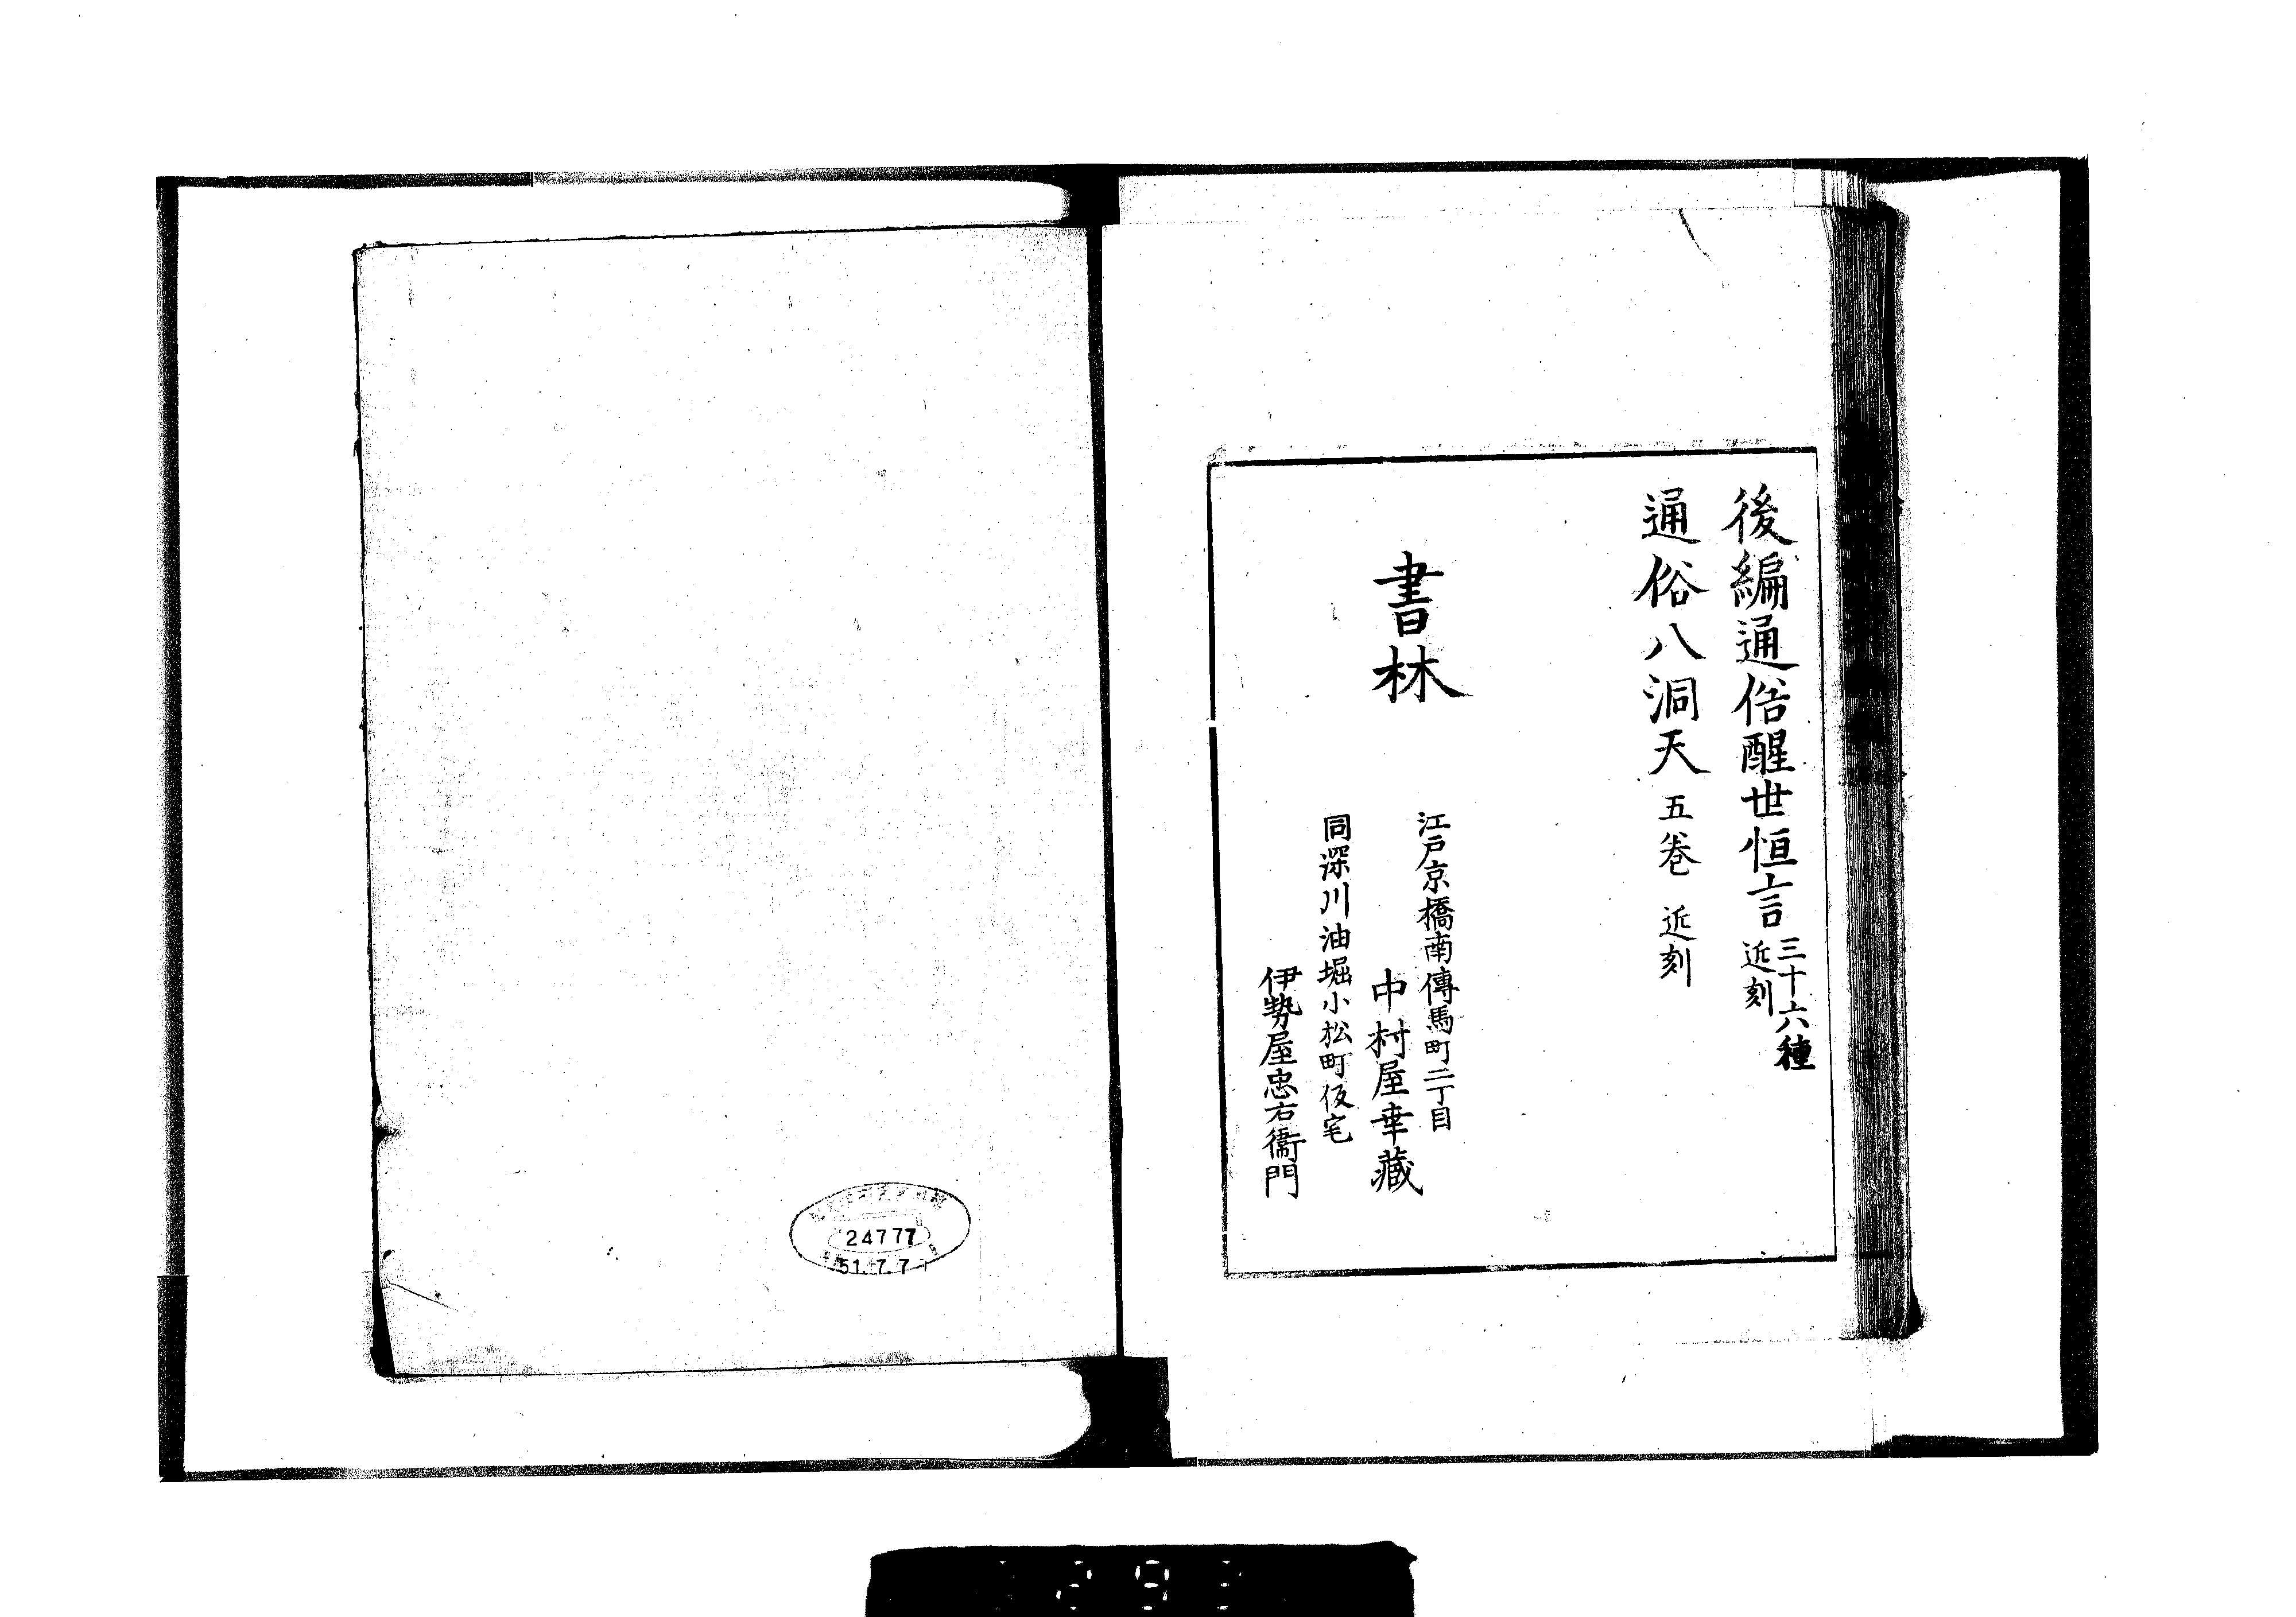 後編通俗醒世恒言 三十六種
近刻
通俗八洞天 五巻 近刻
書林
江戸京橋南傳馬町二丁目
中村屋幸藏
同深川油堀小松町仮宅
伊勢屋忠右衞門
24777
51.7.7